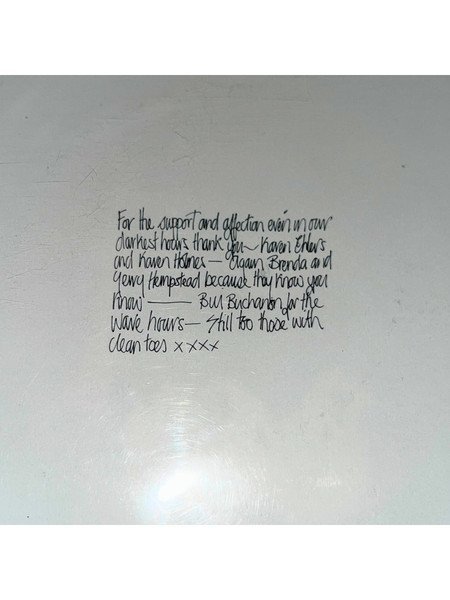 For the support and affection even in our
darkest hours thank you ~ Karen Ehlers
and Karen Holmes — Again Brenda and
Gerry Hempstead because they know you
know —— Bill Buchanan for the
Wave hours — Still too those with
clean toes xxxx